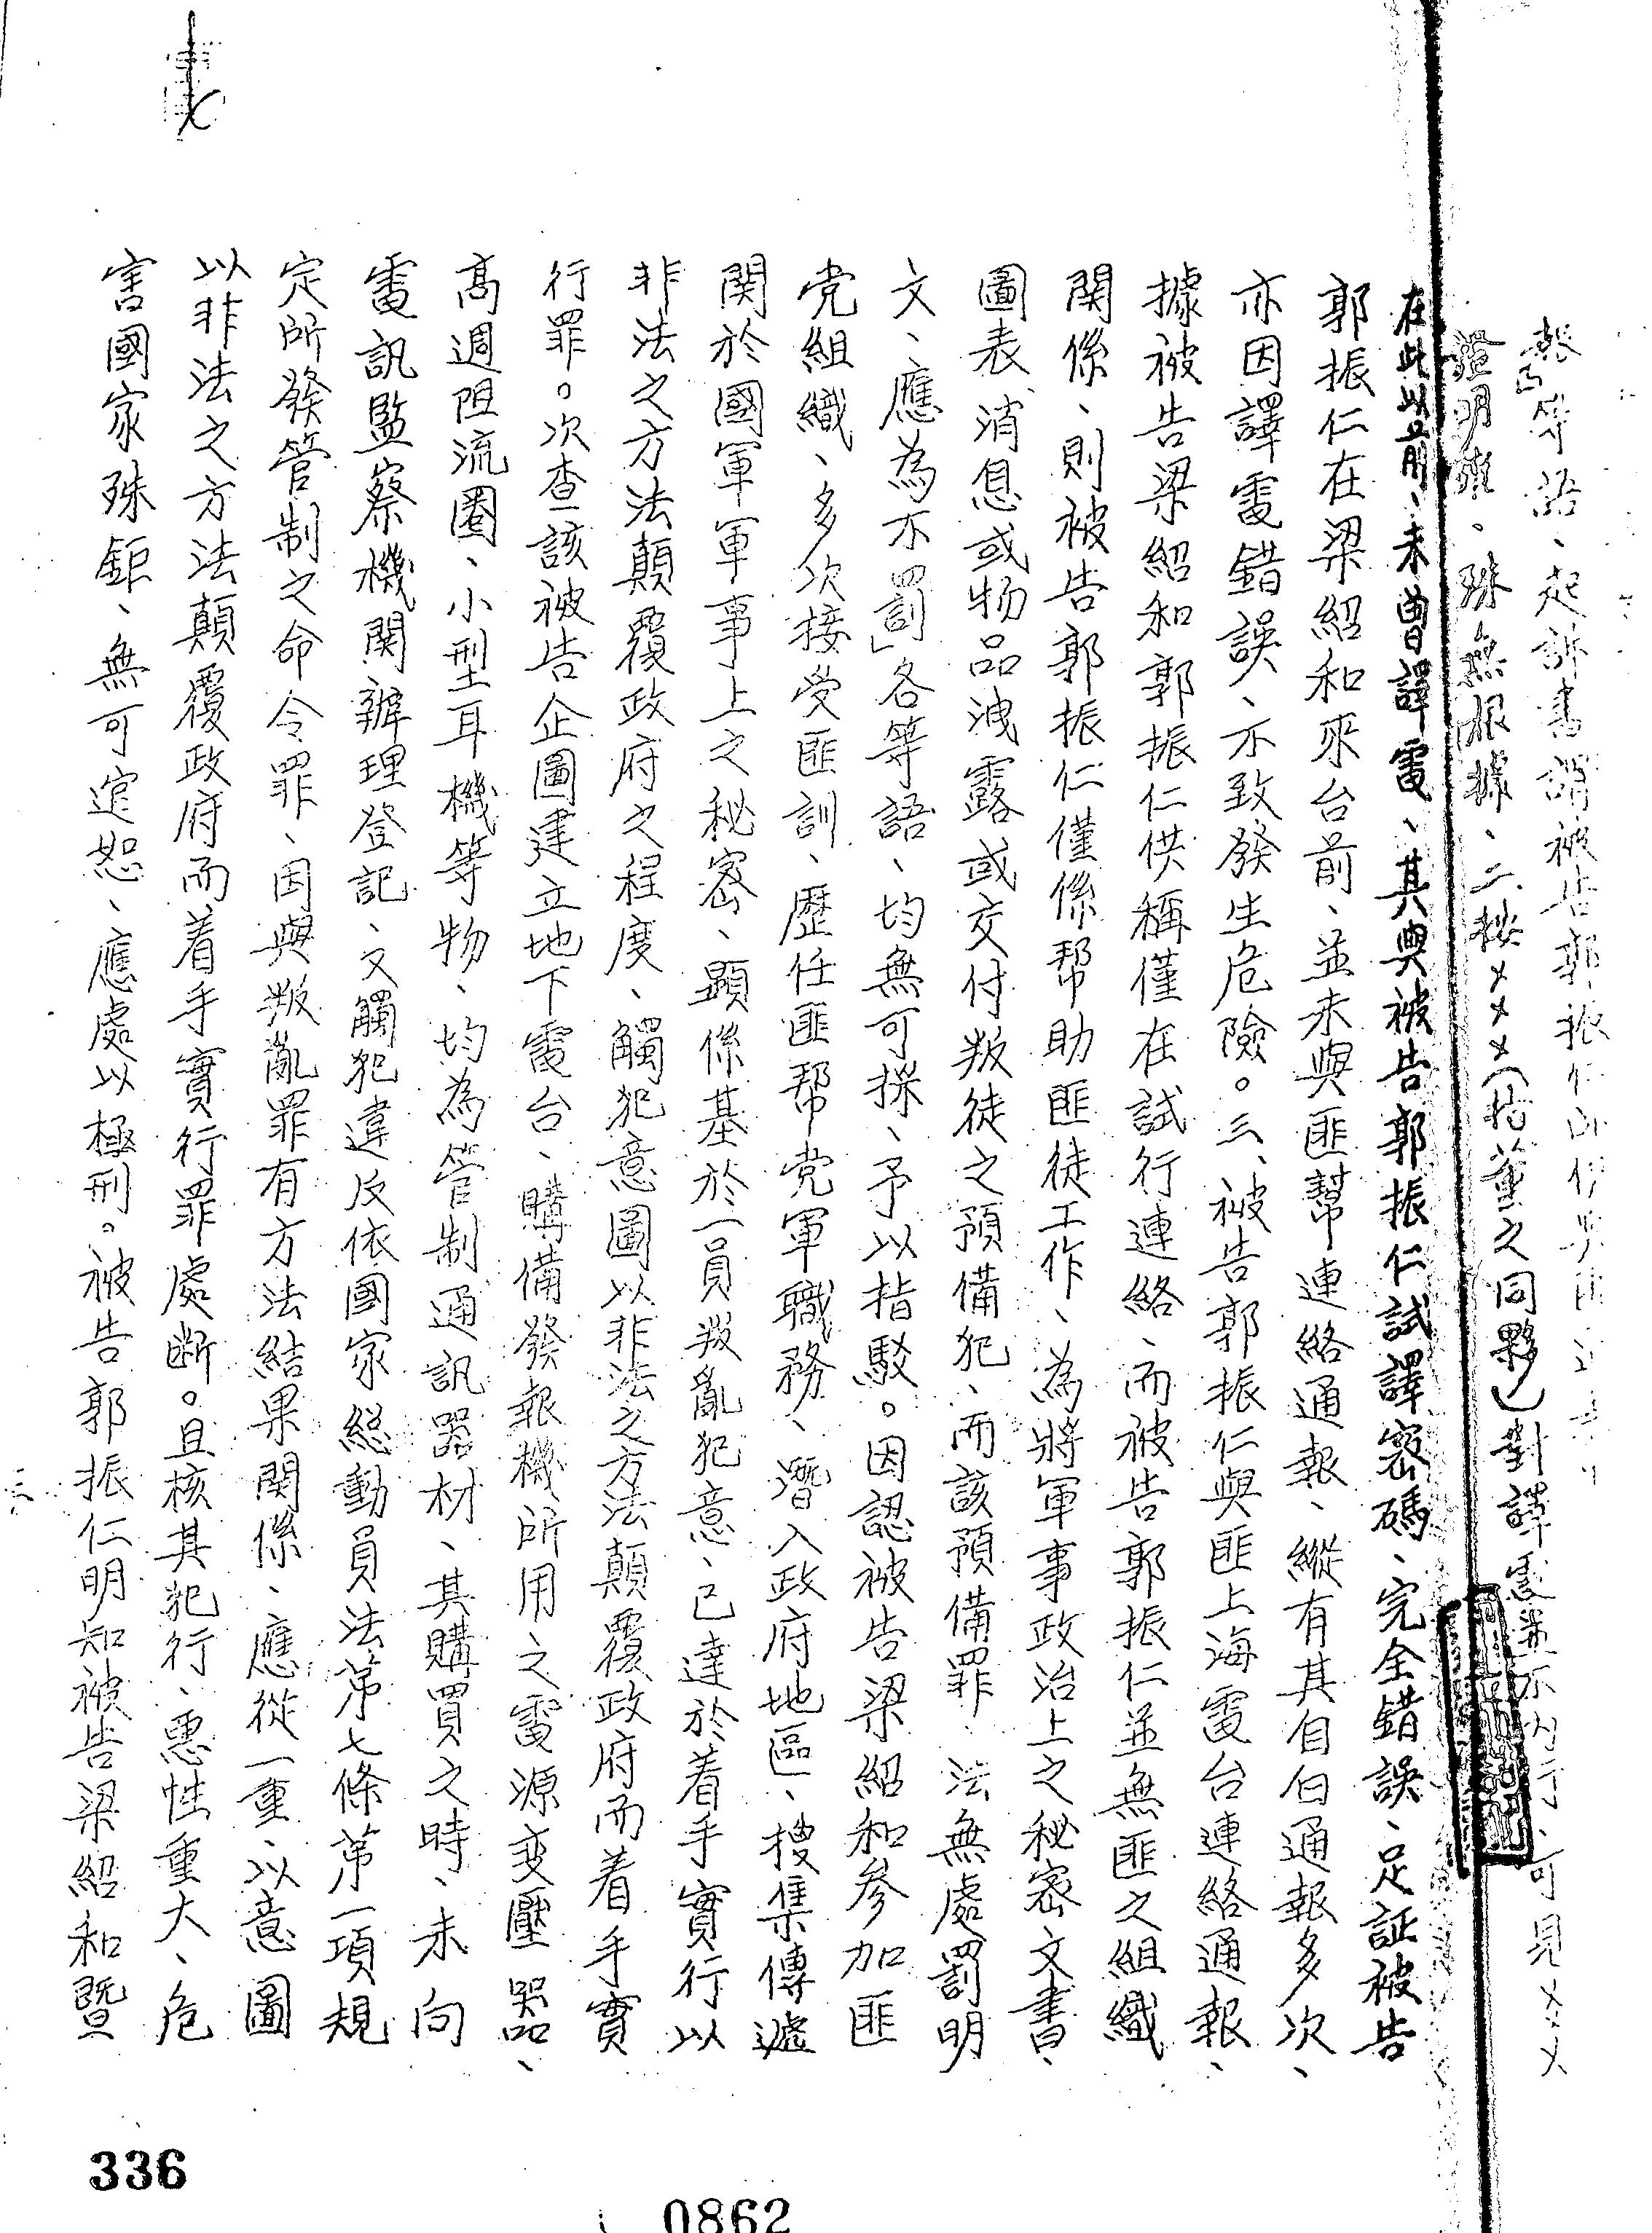 等語、起訴書謂被告郭振仁
證明、殊無根據、二、按×××(指董之同夥)對譯電並不內行、可見×××
在此以前、未曾譯電、其與被告郭振仁試譯密碼、完全錯誤、足証被告
郭振仁在梁紹和來台前、並未與匪幫連絡通報、縱有其自白通報多次、
亦因譯電錯誤、不致發生危險。三、被告郭振仁與匪上海電台連絡通報、
據被告梁紹和郭振仁供稱僅在試行連絡、而被告郭振仁並無匪之組織
関係、則被告郭振仁僅係帮助匪徒工作、為將軍事政治上之秘密文書、
圖表、消息或物品洩露或交付叛徒之預備犯、而該預備罪 法無處罰明
文、應為不罰」各等語、均無可採、予以指駁。因認被告梁紹和參加匪
党組織、多次接受匪訓、歷任匪帮党軍職務、潛入政府地區、搜集傳遞
関於國軍軍事上之秘密、顯係基於一員叛亂犯意、已達於着手實行以
非法之方法顛覆政府之程度、觸犯意圖以非法之方法顛覆政府而着手實
行罪。次查該被告企圖建立地下電台、購備發報機所用之電源变壓器、
高週阻流圈、小型耳機等物、均為管制通訊器材、其購買之時、未向
電訊監察機関辦理登記、又觸犯違反依國家総動員法第七條第一項規
定所發管制之命令罪、因與叛亂罪有方法結果関係、應從一重、以意圖
以非法之方法顛覆政府而着手實行罪處断。且核其犯行、惡性重大、危
害國家殊鉅、無可逭恕、應處以極刑。被告郭振仁明知被告梁紹和暨
336
0862